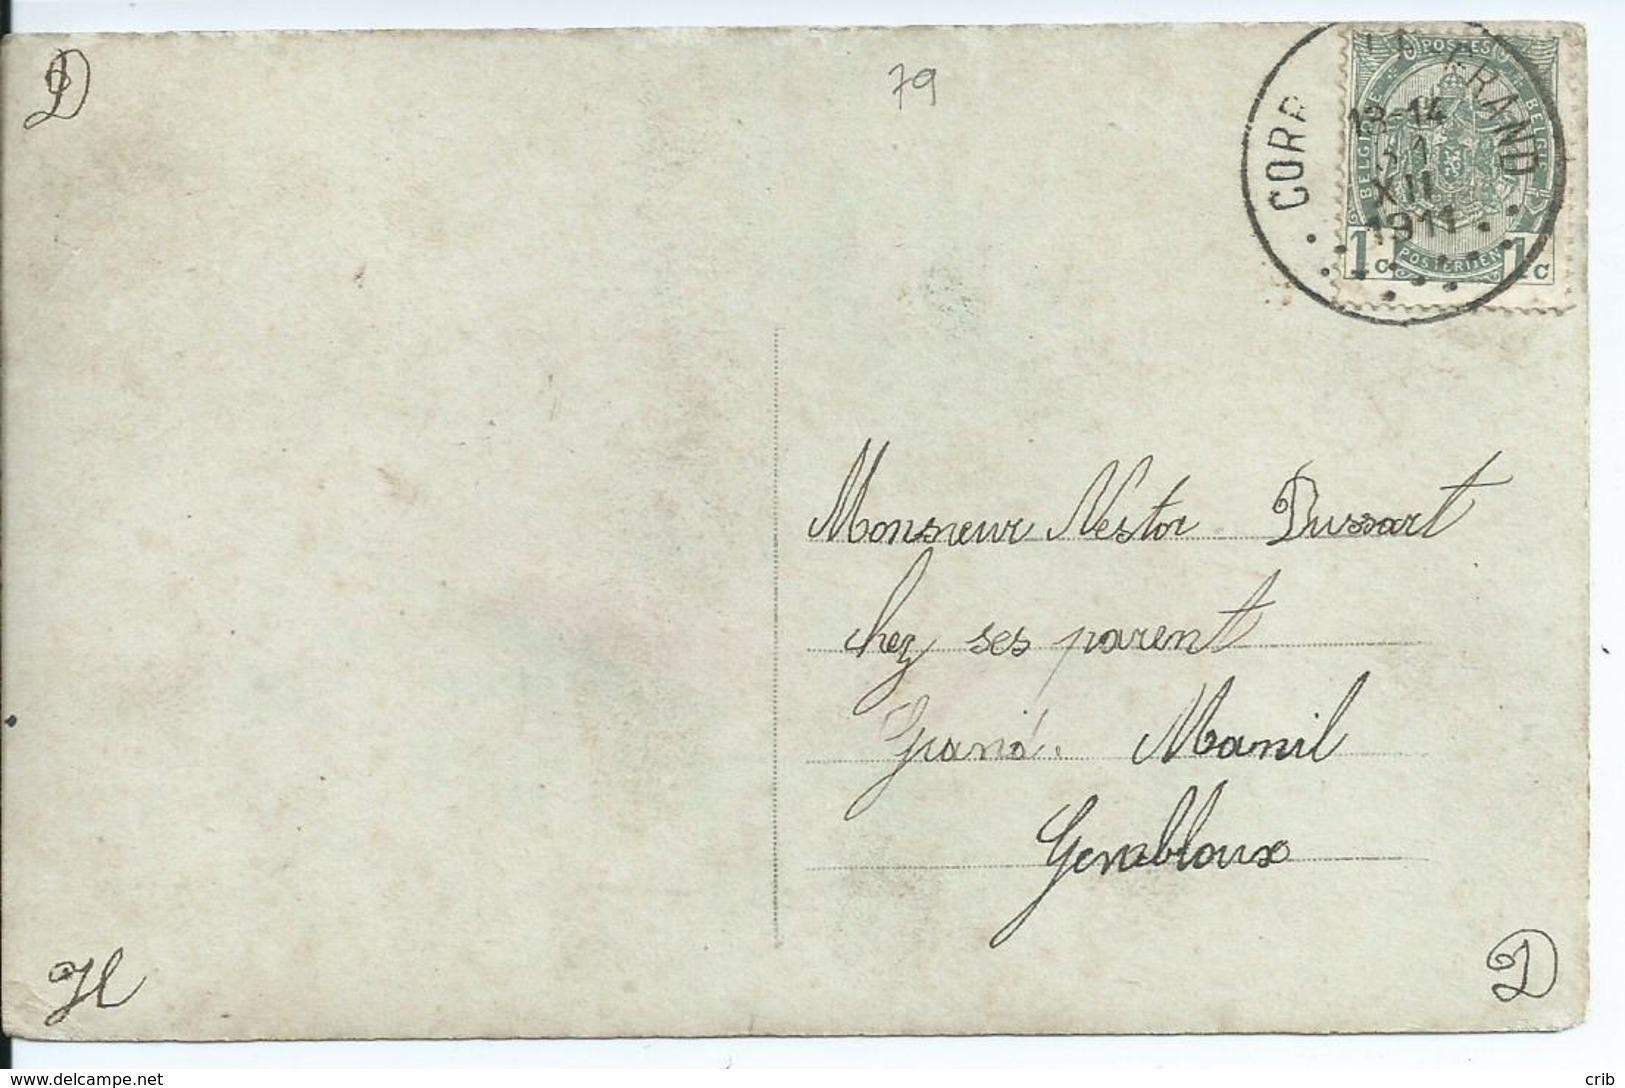 D
79
CORR LE GRAND
13-14
31
XII
1911
POSTES
BELGIQUE
BELGIE
POSTERIJEN
1c 1c
Monsneur Nestor Dussart
chez ses parent
Grand. Manil
Gembloux
H
D
delcampe.net
crib